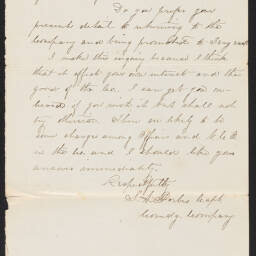 Do you prefer your
present detail to returning to the
Company and being promoted to Sergeant
I make this inquiry because I think
that it affects your own interest and the
good of the Co. I can get you
of you wish it but shall not
try otherwise There is likely to be
some changes among officers and
in the Co and I should like your
answer immediately.
Respectfully
S. A. Forbes Capt
Comdg Company